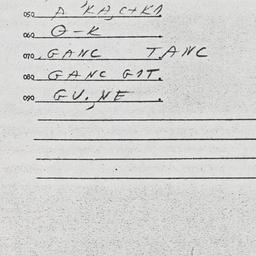 050 A 'KA,C+KΛ
060 Θ-K
070 .GANC T.ANC
080 GANC GΛT.
090 GU.,NE .